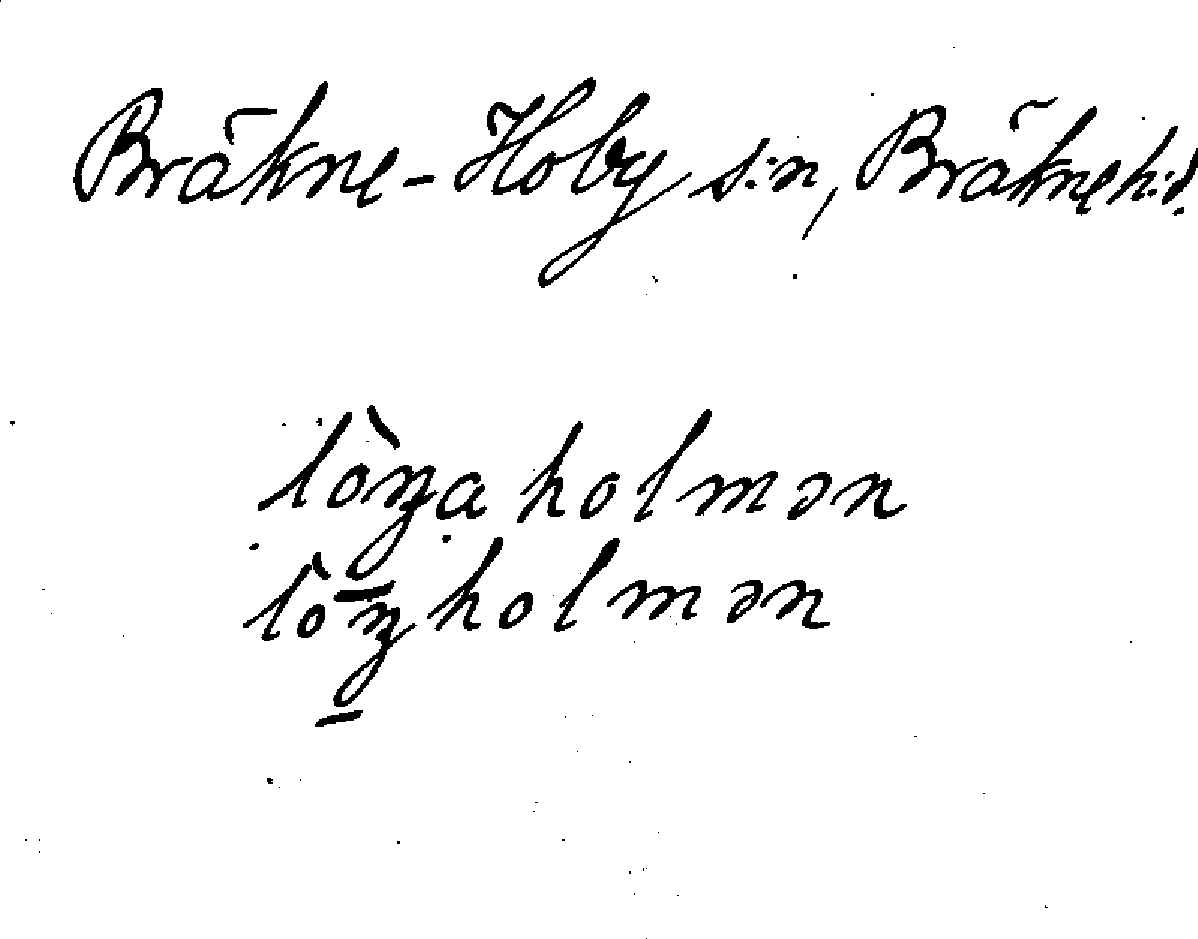 Bräkne-Hoby s:n, Bräkne h:d.
lòŋaholmən
lòŋholmən